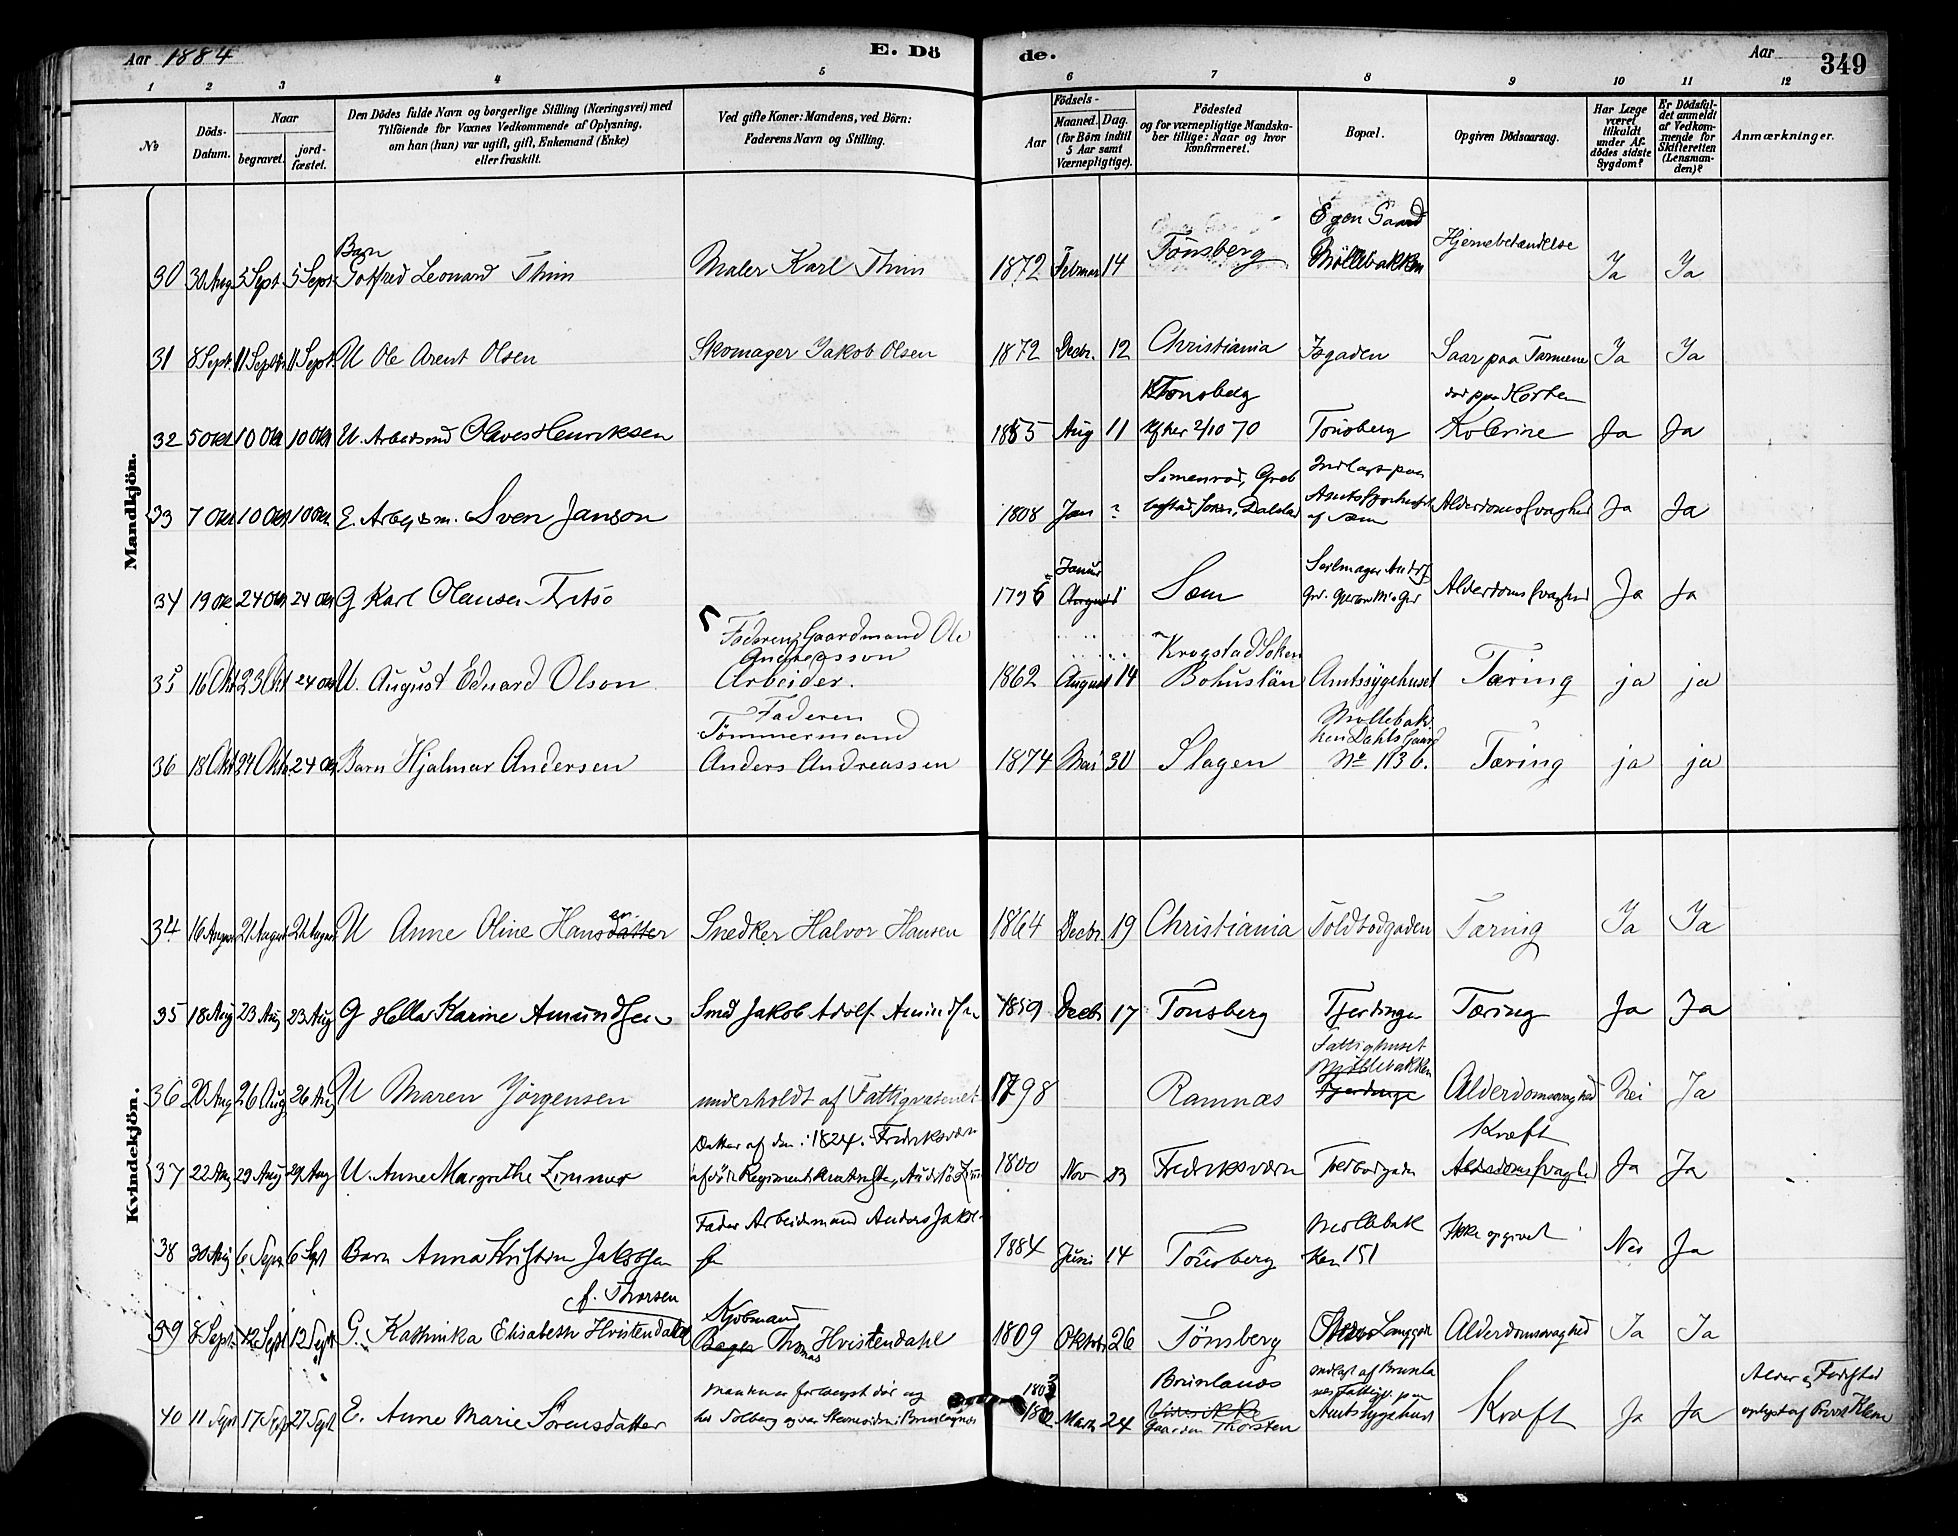 Aar 1884 E. Dö de. Aar 349
1 2 3 4 5 6 7 8 9 10 11 12
№ Döds-Datum. Naar begravet. jord-fæstet. Den Dödes fulde Navn og borgerlige Stilling (Næringsvei) med Tilföiende for Voxnes Vedkommende af Oplysning, om han (hun) var ugift, gift, Enkemand (Enke) eller fraskilt. Ved gifte Koner: Mandens, ved Börn: Faderens Navn og Stilling. Födsels- Aar Maaned. Dag. (for Börn indtil 5 Aar samt Værnepligtige). Födested og for værnepligtige Mandska-ber tillige: Naar og hvor konfirmeret. Bopæl. Opgiven Dödsaarsag. Har Læge været tilkaldt under Af-dödes sidste Sygdom? Er Dödsfal-det anmeldt af Vedkom-mende for Skifteretten (Lensman-den)? Anmærkninger.
Mandkjön.
30 30 Aug 5 Sept 5 Sept Barn Gotfred Leonard Thim Maler Karl Thim 1872 Februar 14 Tönsberg Egen Gaard Möllebakken Hjernebetændelse Ja Ja
31 8 Sept. 11 Septr. 11 Sept. U Ole Arent Olsen Skomager Jakob Olsen 1872 Decbr. 12 Christiania Saar paa Tarmene Ja Ja
32 5 Okt 10 Okt 10 Okt U. Arbeidsmd Olaves Henriksen 1855 Aug 11 Tönsberg 2/10 70 Tönsberg död paa Horten Kolerine Ja Ja
33 7 Okt 10 Okt 10 Okt E. Arbejdsm. Sven Janson 1808 Jan ? Indlagt paa Amtssygehuset af Sem Alderdomssvaghed Ja Ja
34 19 Okt 24 Okt 24 Okt G Karl Olausen Fritsö 1796 Januar August Sem Alderdomssvaghed Ja Ja
35 16 Okt 23 Okt 24 Okt U. August Edvard Olson Faderen Gaardmand Ole Andreasson Arbeider. 1862 August 14 Krogstad Soken Bohuslän Amtssygehuset Tæring ja ja
36 18 Okt 24 Okt 24 Okt Barn Hjalmar Andersen Faderen Tömmermand Anders Andreassen 1874 Mai 30 Slagen Möllebakken Dahls Gaard No 113 b. Tæring ja ja
Kvindekjön.
34 16 August 21 August 21 August U Anne Oline Hansdatter en Snedker Halvor Hansen 1864 Decbr 19 Christiania Toldbodgaden Tæring Ja Ja
35 18 Aug 23 Aug 23 Aug G Hella Karine Amundsen Smed Jakob Adolf Amundsen 1859 Decbr 17 Tönsberg Fjerdingen Tæring Ja Ja
36 20 Aug 26 Aug 26 Aug U Maren Jörgensen underholdt af Fattigvæsenet 1798 Ramnæs Fattighuset Möllebakken Fjerdinge Alderdomssvaghed Nei Ja
37 22 Aug 29 Aug 29 Aug U. Anne Margrethe Zimmer Datter af den i 1824 i Fredriksværn afdöde 1800 Nov 23 Fredriksværn Kræft Alderdomssvaghed Ja Ja
38 30 Aug 6 Sept 6 Sept Barn Anna Kristine Jakobsen Fader Arbeidsmand Anders Jakobsen 1884 Juni 14 Tönsberg Möllebakken 151 Ikke opgivet Nei Ja
39 8 Sept. 12 Sept 12 Sept G. Kathinka Elisabeth Hvistendahl f. Thorsen Kjöbmand Bager Thomas Hvistendahl 1809 Oktobr 26 Tönsberg Alderdomssvaghed Ja Ja
40 11 Sept 17 Sept 27 Sept E. Anne Marie Sörensdatter 1803 1802 Marts 24 Brunlanæs Gaarden Thorsten indlagt af Brunlanæs Fattigv. paa Amtssygehuset Kræft Ja Ja Alder og Födested oplyst af Provst Klem